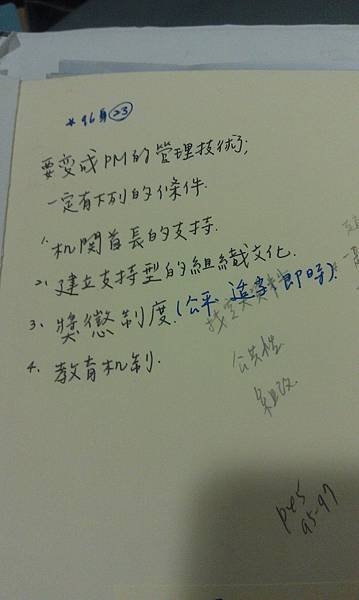 *96身23
要变成PM的管理技術;
一定有下列的條件.
1.机関首長的支持.
2.建立支持型的組織文化.
3、獎懲制度.(公平 適宜 即時)
4、教育机制.
公共性
組改
p45
95-97